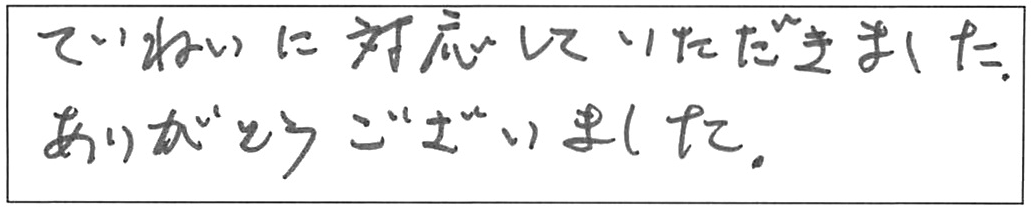 ていねいに対応していただきました.
ありがとうございました.